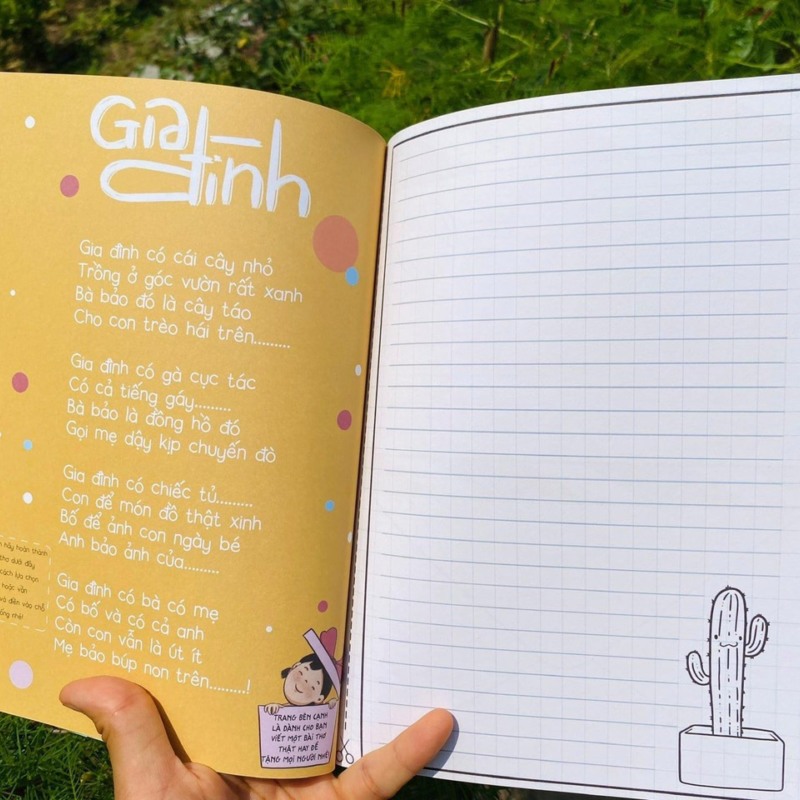 Gia
đình
Gia đình có cái cây nhỏ
Trồng ở góc vườn rất xanh
Bà bảo đó là cây táo
Cho con trèo hái trên.........
Gia đình có gà cục tác
Có cả tiếng gáy.........
Bà bảo là đồng hồ đó
Gọi mẹ dậy kịp chuyến đò
Gia đình có chiếc tủ.........
Con để món đồ thật xinh
Bố để ảnh con ngày bé
Anh bảo ảnh của.........
Gia đình có bà có mẹ
Có bố và có cả anh
Còn con vẫn là út ít
Mẹ bảo búp non trên.........!
hãy hoàn thành
thơ dưới đây
cách lựa chọn
hoặc vần
và điền vào chỗ
trống nhé!
TRANG BÊN CẠNH
LÀ DÀNH CHO BẠN
VIẾT MỘT BÀI THƠ
THẬT HAY ĐỂ
TẶNG MỌI NGƯỜI NHÉ!